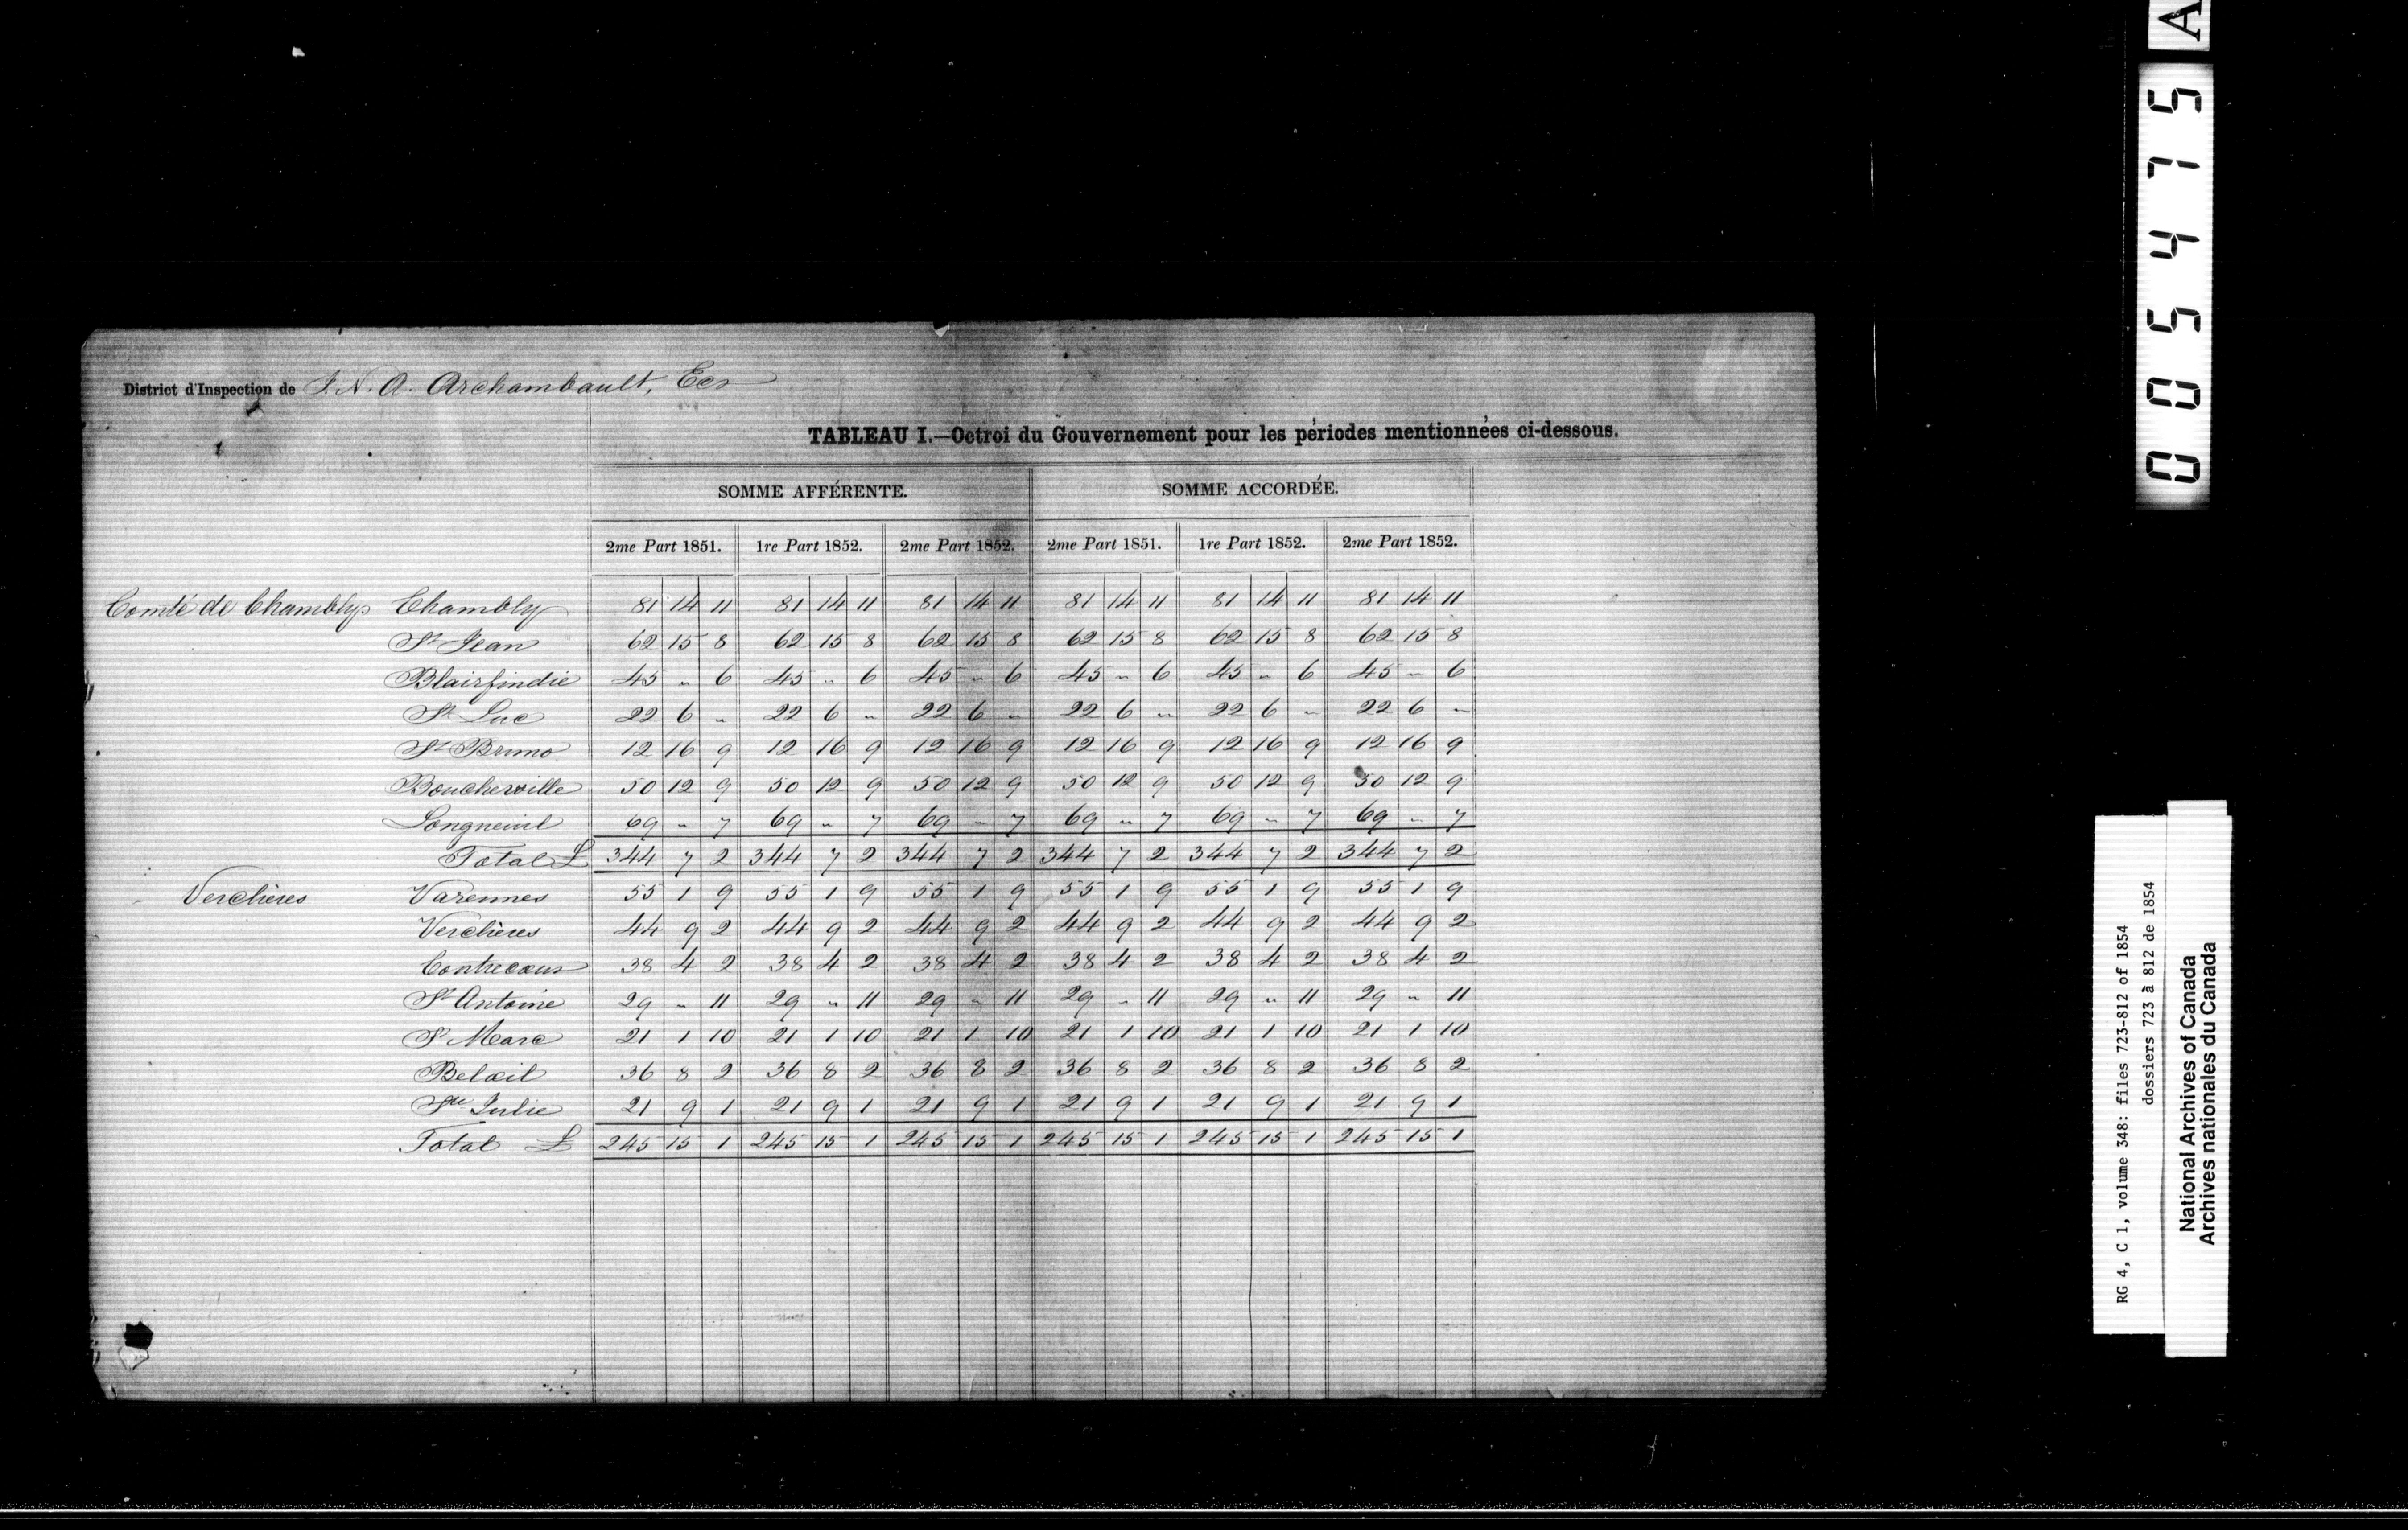 District d'Inspection de J. N. A. Archambault, Ecr
TABLEAU I.—Octroi du Gouvernement pour les périodes mentionnées ci-dessous.
SOMME AFFÉRENTE. SOMME ACCORDÉE.
2me Part 1851. 1re Part 1852. 2me Part 1852. 2me Part 1851. 1re Part 1852. 2me Part 1852.
Comté de Chambly Chambly 81 14 11 81 14 11 81 14 11 81 14 11 81 14 11 81 14 11
St Jean 62 15 8 62 15 8 62 15 8 62 15 8 62 15 8 62 15 8
Blairfindie 45 " 6 45 " 6 45 " 6 45 " 6 45 " 6 45 " 6
St Luc 22 6 " 22 6 " 22 6 " 22 6 " 22 6 " 22 6 "
St Bruno 12 16 9 12 16 9 12 16 9 12 16 9 12 16 9 12 16 9
Boucherville 50 12 9 50 12 9 50 12 9 50 12 9 50 12 9 50 12 9
Longueuil 69 " 7 69 " 7 69 " 7 69 " 7 69 " 7 69 " 7
Total £ 344 7 2 344 7 2 344 7 2 344 7 2 344 7 2 344 7 2
Verchères Varennes 55 1 9 55 1 9 55 1 9 55 1 9 55 1 9 55 1 9
Verchères 44 9 2 44 9 2 44 9 2 44 9 2 44 9 2 44 9 2
Contrecœur 38 4 2 38 4 2 38 4 2 38 4 2 38 4 2 38 4 2
St Antoine 29 " 11 29 " 11 29 " 11 29 " 11 29 " 11 29 " 11
St Marc 21 1 10 21 1 10 21 1 10 21 1 10 21 1 10 21 1 10
Belœil 36 8 2 36 8 2 36 8 2 36 8 2 36 8 2 36 8 2
Ste Julie 21 9 1 21 9 1 21 9 1 21 9 1 21 9 1 21 9 1
Total £ 245 15 1 245 15 1 245 15 1 245 15 1 245 15 1 245 15 1
005475 A
RG 4, C 1, volume 348: files 723-812 of 1854
dossiers 723 à 812 de 1854
National Archives of Canada
Archives nationales du Canada